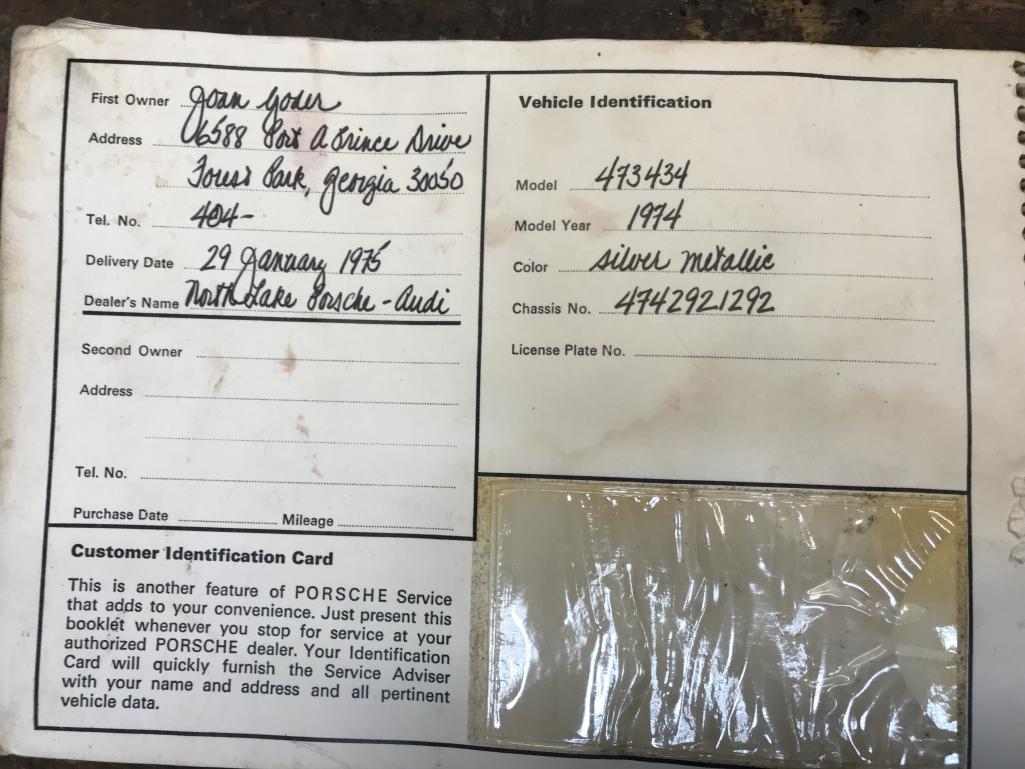 First Owner Joan Yoder
Address 6588 Port A Prince Drive
Forest Park, Georgia 30050
Tel. No. 404-
Delivery Date 29 January 1975
Dealer's Name North Lake Porsche - Audi
Second Owner
Address
Tel. No.
Purchase Date Mileage
Customer Identification Card
This is another feature of PORSCHE Service
that adds to your convenience. Just present this
booklet whenever you stop for service at your
authorized PORSCHE dealer. Your Identification
Card will quickly furnish the Service Adviser
with your name and address and all pertinent
vehicle data.
Vehicle Identification
Model 473434
Model Year 1974
Color silver metallic
Chassis No. 4742921292
License Plate No.